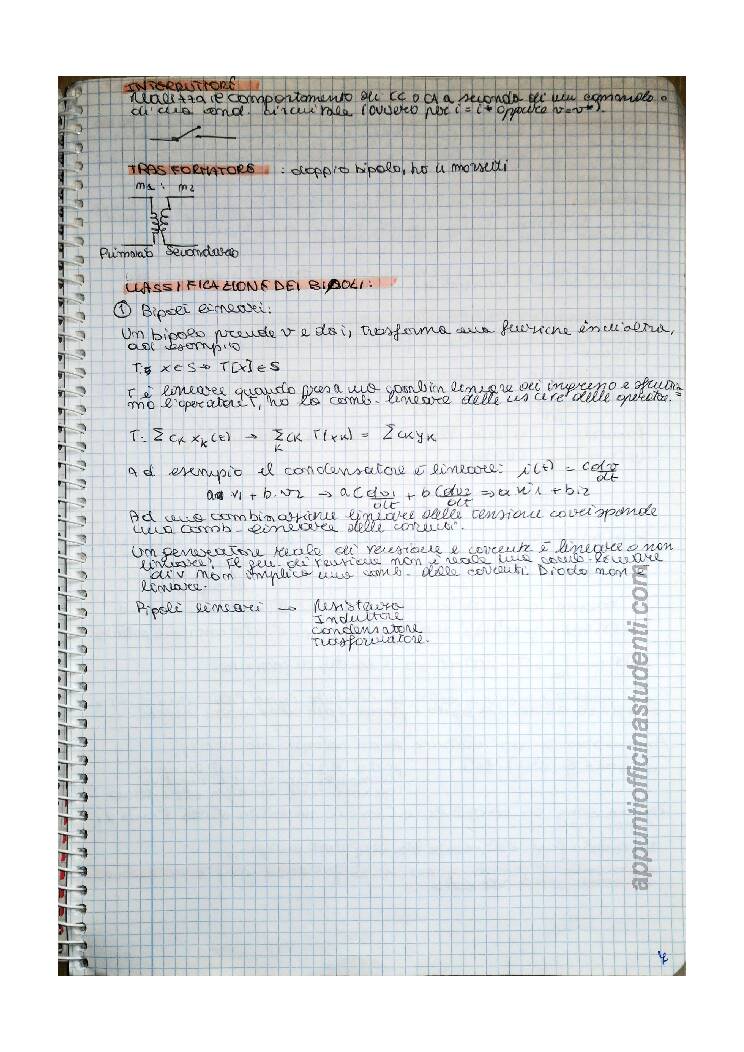 INTERRUTTORE
realizza il comportamento di CC o CA a seconda di un comando o
di una cond. circuitale (ovvero per i = i* oppure v = v*).
TRASFORMATORE : doppio bipolo, ho 4 morsetti
m1 : m2
Primario Secondario
CLASSIFICAZIONE DEI BIPOLI:
① Bipoli lineari:
Un bipolo prende v e dà i, trasforma una funzione in un'altra,
ad esempio
T: x ∈ S → T[x] ∈ S
T è lineare quando presa una combin lineare di ingressi e
mo l'operatore T, ho la comb. lineare delle uscite
T: Σ ck xk(t) → Σ ck T(xk) = Σ ck yk
K
Ad esempio il condensatore è lineare: i(t) = C dv/dt
a v1 + b v2 → a C dv1/dt + b C dv2/dt ⇒ a i1 + b i2
Ad una combinazione lineare delle tensione corrisponde
una comb. lineare delle correnti.
Un generatore reale di tensione e corrente è lineare o non
lineare? Il gen. di tensione non è reale una comb. lineare
di v non implica una comb. delle correnti. Diodo non è
lineare.
Bipoli lineari → Resistenza
Induttore
condensatore
trasformatore.
appuntiofficinastudenti.com
4